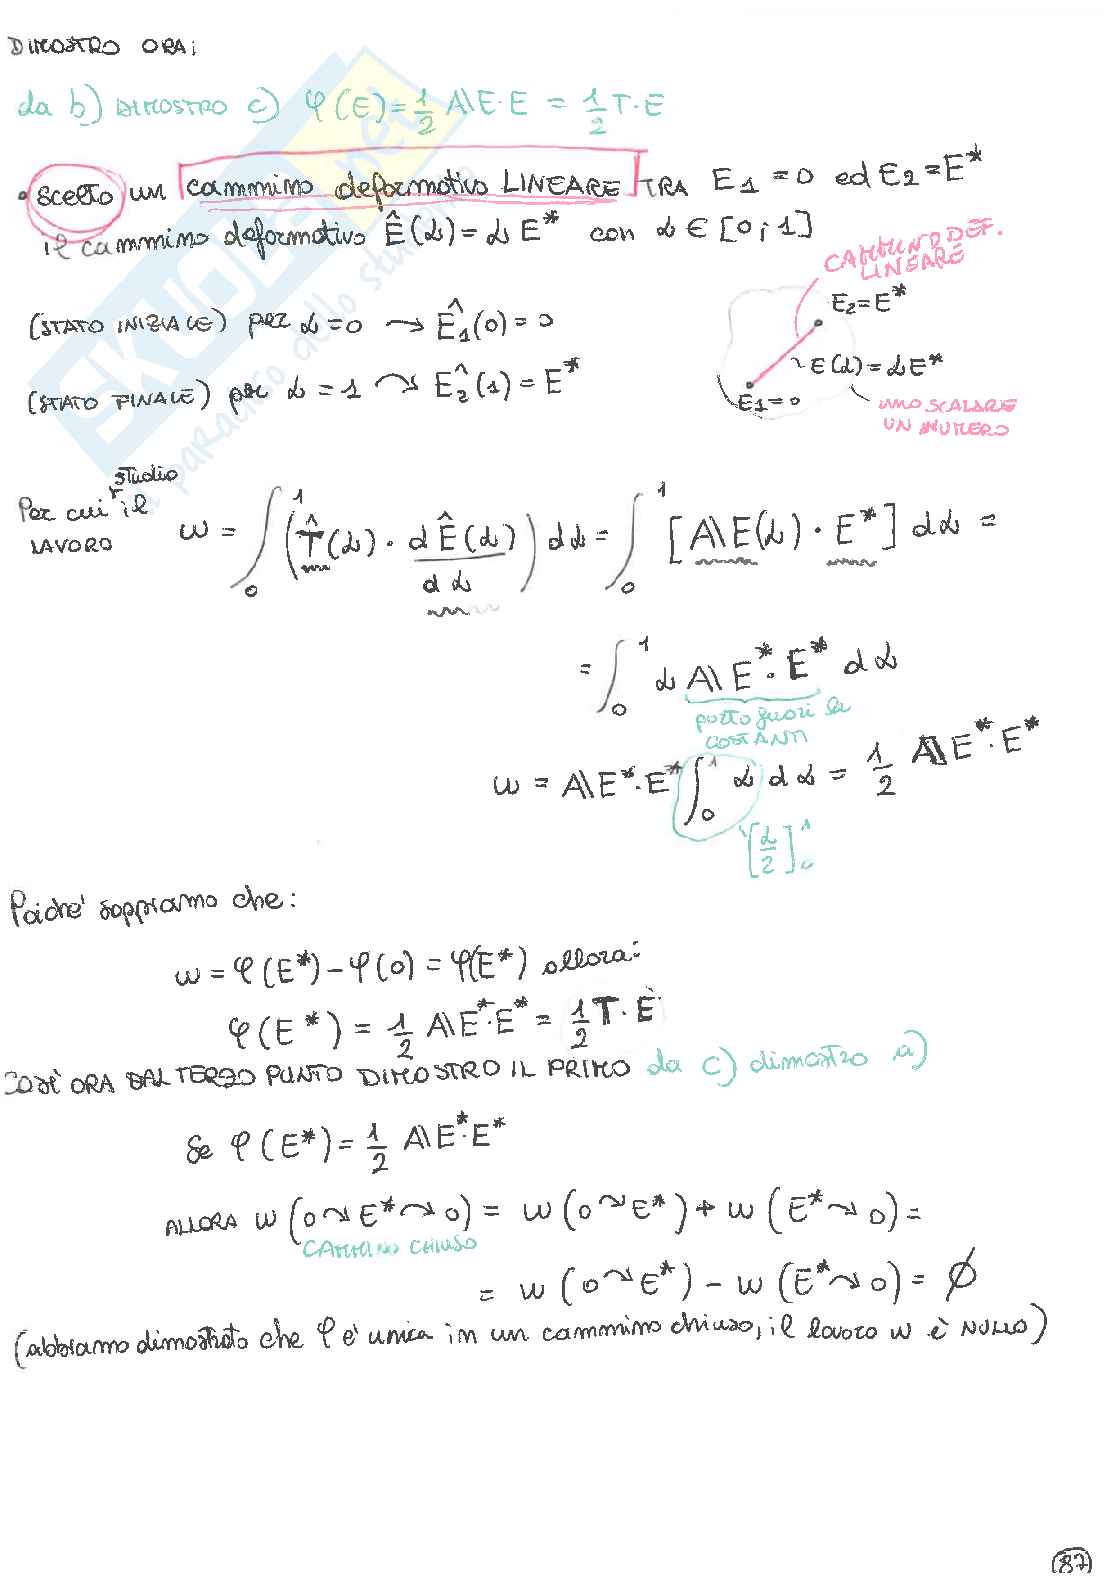 DIMOSTRO ORA:
da b) DIMOSTRO c) φ(E) = 1/2 𝔸E·E = 1/2 T·E
• scelto un cammino deformativo LINEARE TRA E1 = 0 ed E2 = E*
il cammino deformativo Ê(α) = α E* con α ∈ [0;1]
CAMMINO DEF.
LINEARE
E2 = E*
(STATO INIZIALE) per α = 0 → Ê1(0) = 0
E(α) = αE*
(STATO FINALE) per α = 1 → Ê2(1) = E*
E1 = 0
UNO SCALARE
UN NUMERO
studio
Per cui il
LAVORO
w = ∫₀¹ (T̂(α) · dÊ(α)/dα) dα = ∫₀¹ [𝔸E(α) · E*] dα =
= ∫₀¹ α 𝔸E*·E* dα
porto fuori le
COSTANTI
w = 𝔸E*·E* ∫₀¹ α dα = 1/2 𝔸E*·E*
[α/2]₀¹
Poichè sappiamo che:
w = φ(E*) - φ(0) = φ(E*) allora:
φ(E*) = 1/2 𝔸E*·E* = 1/2 T·E
COSÌ ORA DAL TERZO PUNTO DIMOSTRO IL PRIMO da c) dimostro a)
Se φ(E*) = 1/2 𝔸E*·E*
ALLORA w(0⤳E*⤳0) = w(0⤳E*) + w(E*⤳0) =
CAMMINO CHIUSO
= w(0⤳E*) - w(E*⤳0) = ∅
(abbiamo dimostrato che φ è unica in un cammino chiuso, il lavoro w è NULLO)
87
SKUOLA.net
il paradiso dello studente